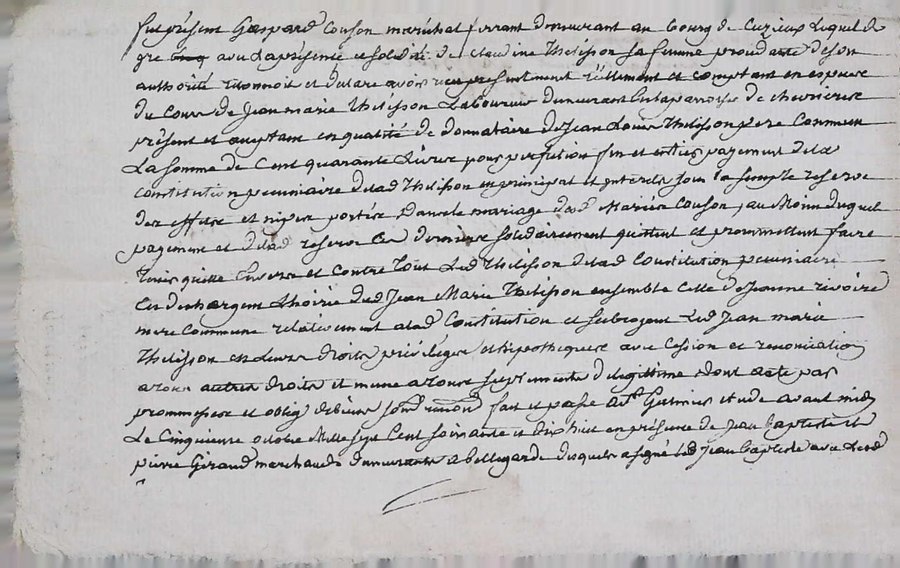 fut présent Gaspard Couson maréchal ferrant demeurant au bourg de Cuzieux Lequel de
gré avec la présence et solidité de Claudine Thelisson sa femme procédante de son
authorité reconnoit et déclare avoir reçu présentement réellement et comptant en espece
du Cours de Jean marie Thelisson Laboureur demeurant en la parroisse de chevrieres
présent et acceptant en qualité de donnataire de Jean Louis Thelisson pere Commun
La somme de Cent quarante Livres pour perfection fin et entier payement de la
Constitution pecuniaire de lad Thelisson en principal et interets sous la simple reserve
des effets et nipes portés dans le mariage de Mariée Couson, au Moïen duquel
payement et de lad reserve Les derniers solidairement quittent et promettent faire
Tenir quitte Envers et Contre Tous Led Thelisson de lad Constitution pecuniaire
En dechargent Lhoirie dud Jean Marie Thelisson ensemble Celle de Jeanne rivoire
mere Commune relativement a lad Constitution et subrogent Led Jean marie
Thelisson en Leurs droits privileges et hipotheques avec Cession et renonciation
a tous autres droits et meme a tous suplements de legittime dont acte par
prommesse et oblig de biens soum renon fait et passé a St Galmier etude avant midy
Le Cinquieme octobre Mille sept Cent soixante et dix huit en présence de Jean Baptiste et
pierre Giraud marchands demeurants a bellegarde desquels a signé led Jean Baptiste avec Led